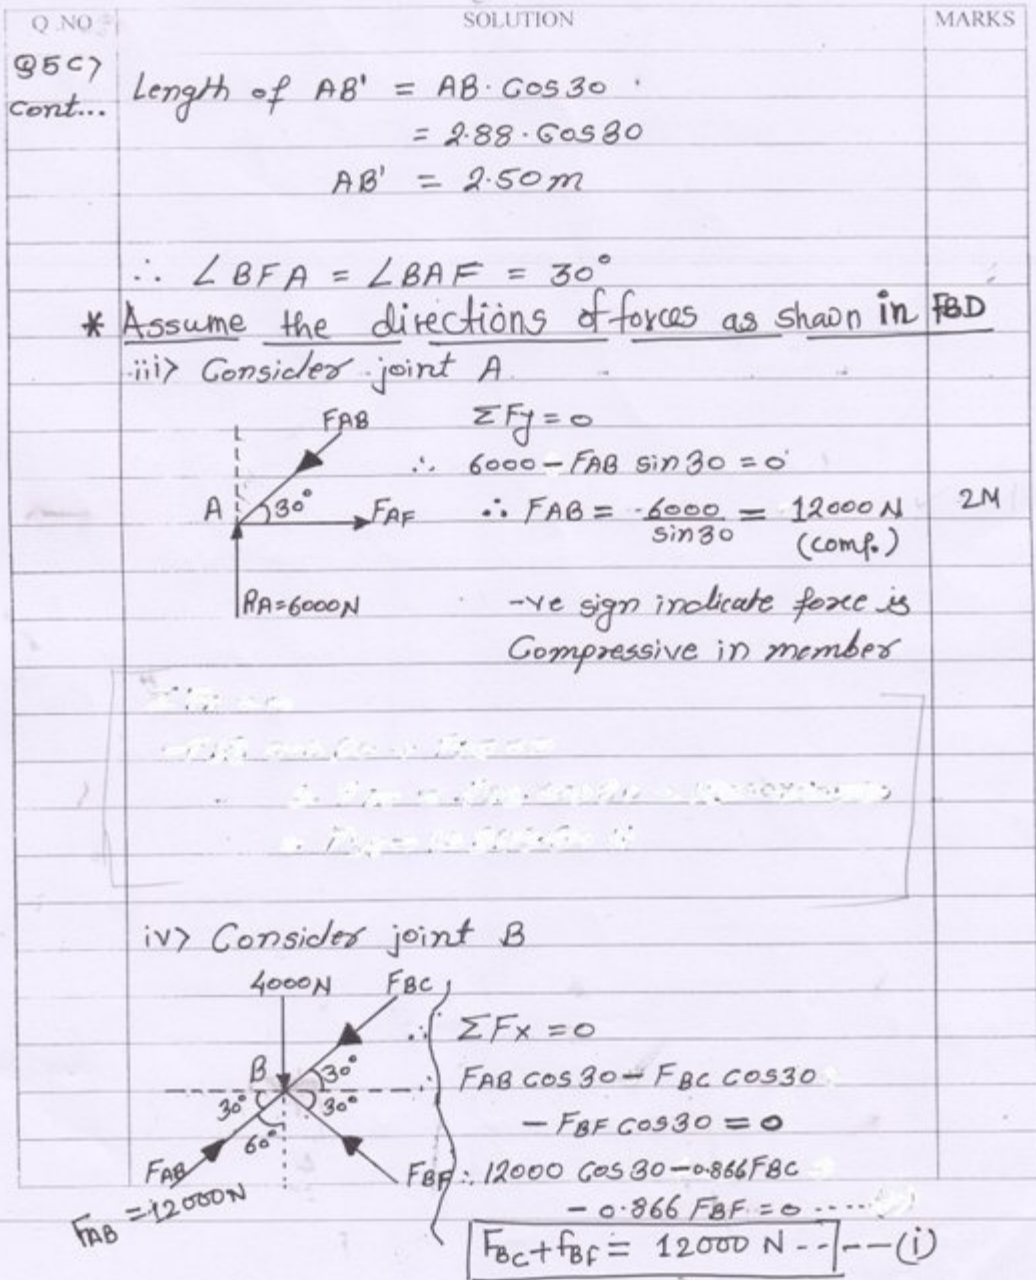 Q.NO
SOLUTION
MARKS
Q5C)
cont...
Length of AB' = AB. Cos30
= 2.88. Cos30
AB' = 2.50m
∴ ∠BFA = ∠BAF = 30°
* Assume the directions of forces as shaon in FBD
iii) Consider joint A
FAB
A
30°
FAF
RA=6000N
ΣFy = 0
∴ 6000 - FAB sin30 = 0
∴ FAB = 6000/sin30 = 12000 N (comp.)
2M
-ve sign indicate force is
Compressive in member
iv) Consider joint B
4000N
FBC
B
30°
30°
30°
60°
FAB
FAB = 12000N
FBF
∴ ΣFx = 0
∴ FAB cos30 - FBC cos30
- FBF cos30 = 0
∴ 12000 cos30 - 0.866FBC
- 0.866 FBF = 0 ----
FBC + fBF = 12000 N ----(i)